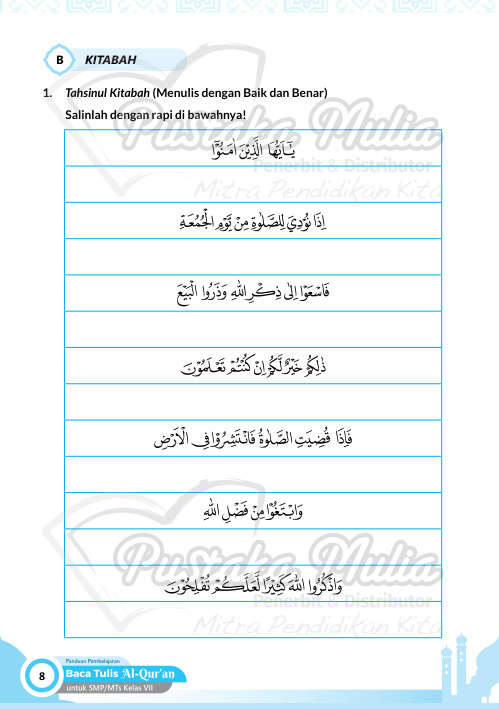 B KITABAH
1. Tahsinul Kitabah (Menulis dengan Baik dan Benar)
Salinlah dengan rapi di bawahnya!
يٰٓاَيُّهَا الَّذِيْنَ اٰمَنُوْٓا
اِذَا نُوْدِيَ لِلصَّلٰوةِ مِنْ يَّوْمِ الْجُمُعَةِ
فَاسْعَوْا اِلٰى ذِكْرِ اللّٰهِ وَذَرُوا الْبَيْعَ
ذٰلِكُمْ خَيْرٌ لَّكُمْ اِنْ كُنْتُمْ تَعْلَمُوْنَ
فَاِذَا قُضِيَتِ الصَّلٰوةُ فَانْتَشِرُوْا فِى الْاَرْضِ
وَابْتَغُوْا مِنْ فَضْلِ اللّٰهِ
وَاذْكُرُوا اللّٰهَ كَثِيْرًا لَّعَلَّكُمْ تُفْلِحُوْنَ
Pustaka Mulia
Penerbit & Distributor
Mitra Pendidikan Kita
Pustaka Mulia
Penerbit & Distributor
Mitra Pendidikan Kita
8
Panduan Pembelajaran
Baca Tulis Al-Qur'an
untuk SMP/MTs Kelas VII